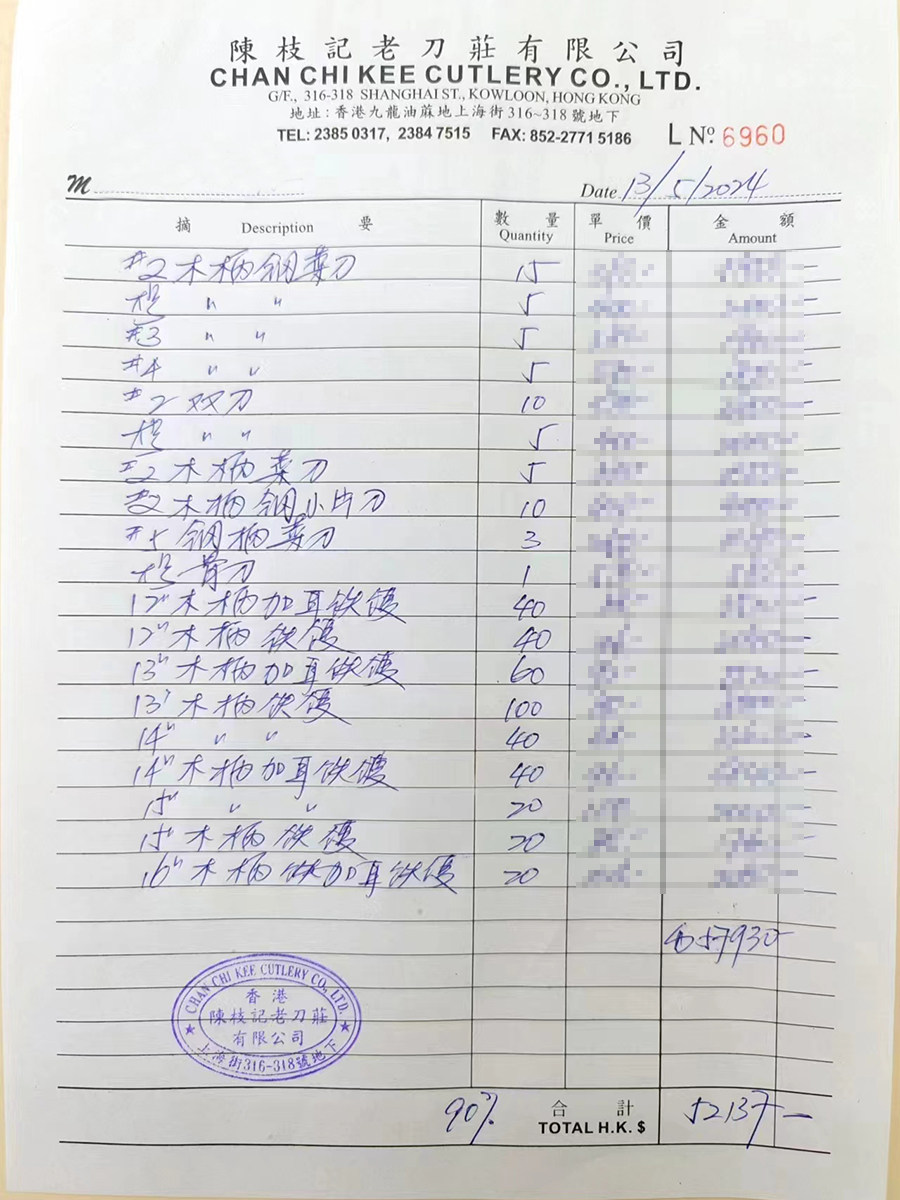 陳枝記老刀莊有限公司
CHAN CHI KEE CUTLERY CO., LTD.
G/F., 316-318 SHANGHAI ST., KOWLOON, HONG KONG
地址：香港九龍油蔴地上海街316~318號地下
TEL: 2385 0317, 2384 7515 FAX: 852-2771 5186 L Nº 6960
M Date 13/5/2024
摘 Description 要 數量 Quantity 單價 Price 金額 Amount
#2 木柄鋼菜刀 15
〃 〃 5
#3 〃 〃 5
#4 〃 〃 5
#2 双刀 10
〃 〃 5
#2 木柄菜刀 5
#2 木柄鋼小片刀 10
#5 鋼柄菜刀 3
骨刀 1
12" 木柄加耳铁鑊 40
12" 木柄铁鑊 40
13" 木柄加耳铁鑊 60
13" 木柄铁鑊 100
14" 〃 〃 40
14" 木柄加耳铁鑊 40
15" 〃 〃 20
15" 木柄铁鑊 20
16" 木柄铁加耳铁鑊 20
57930-
CHAN CHI KEE CUTLERY CO., LTD.
香港
陳枝記老刀莊
有限公司
上海街316-318號地下
90% 合計 TOTAL H.K. $ 52137-